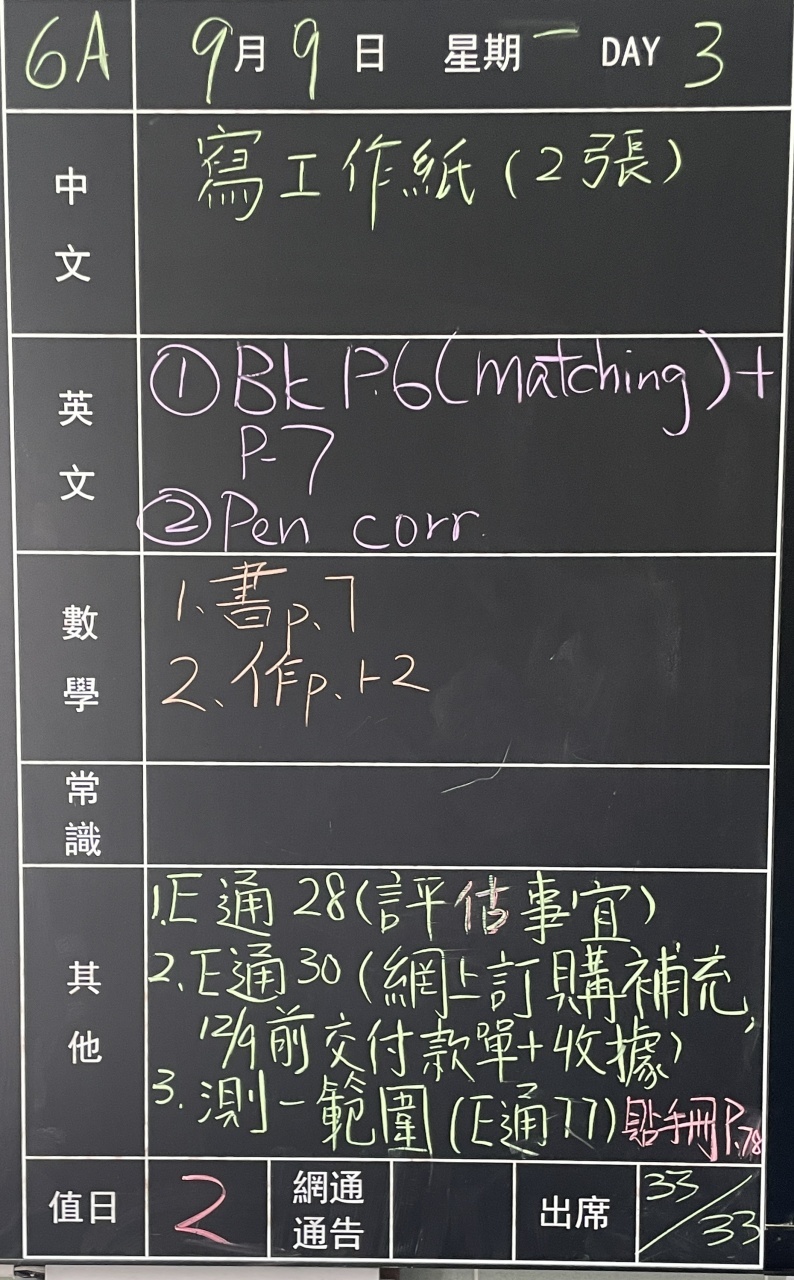 6A 9月9日 星期一 DAY 3
中文 寫工作紙(2張)
英文 ①Bk P.6(matching)+
P-7
②Pen corr.
數學 1.書p.7
2.作p.1-2
常識
其他 1.E通28(評估事宜)
2.E通30(網上訂購補充,
12/9前交付款單+收據)
3.測一範圍(E通17)貼手冊P.78
值日 2 網通通告 出席 33/33